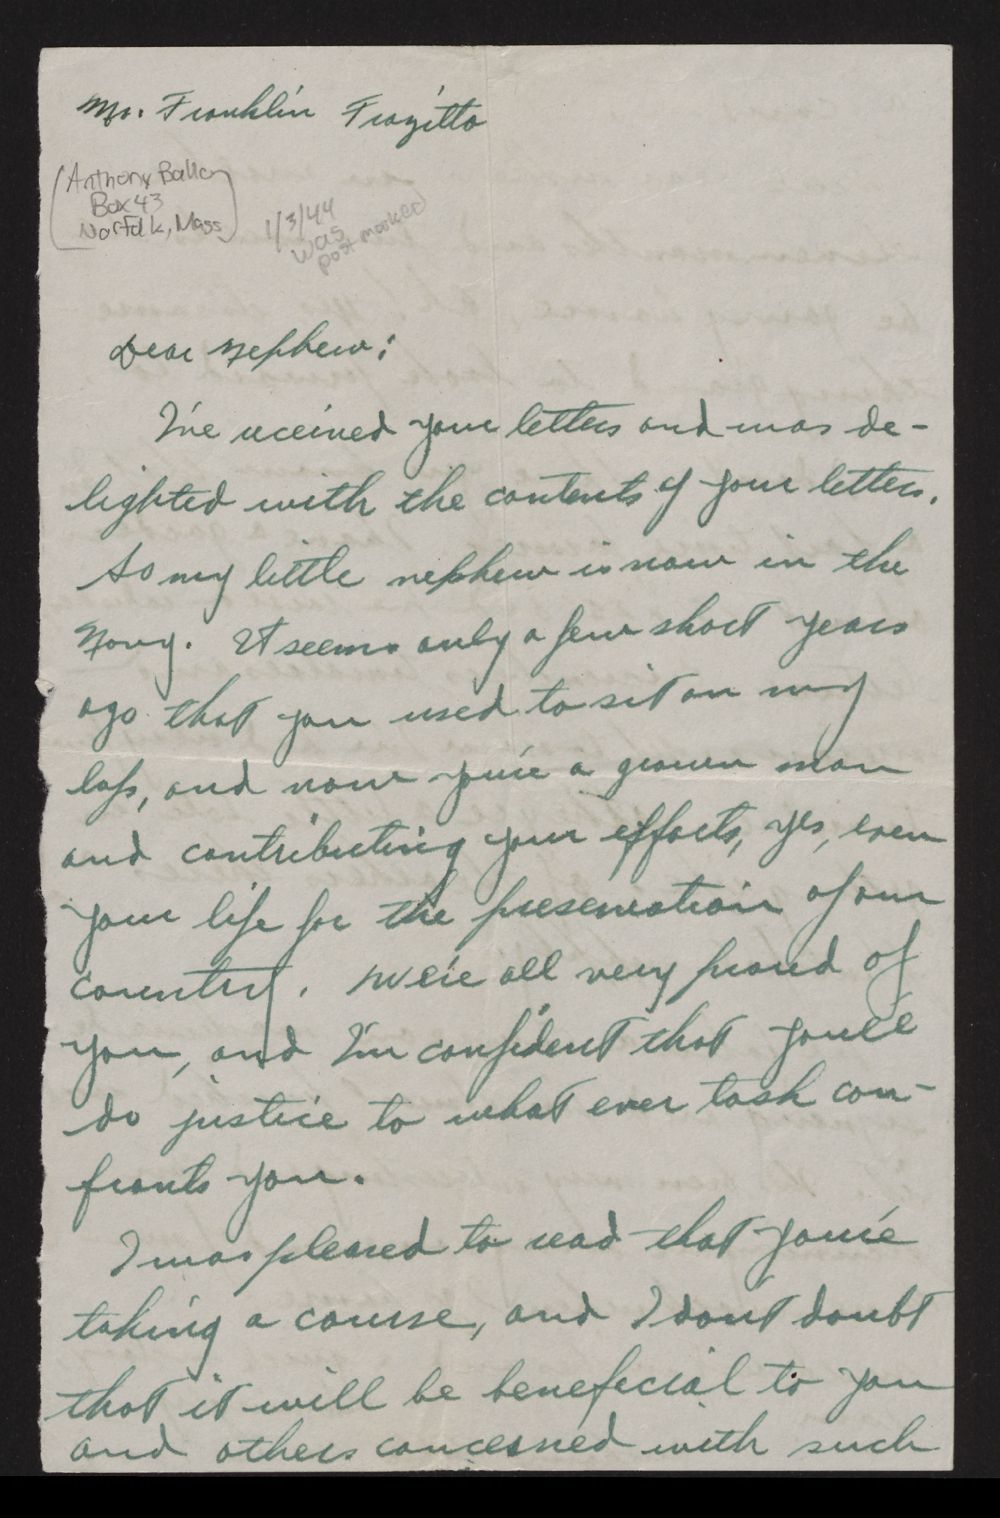 Mr. Franklin Frazitta
(Anthony
Box 43
Norfolk, Mass)
1/3/44
was
post marked
Dear Nephew;
I've received your letters and was de-
lighted with the contents of your letters.
So my little nephew is now in the
Navy. It seems only a few short years
ago that you used to sit on my
lap, and now you're a grown man
and contributing your efforts, yes, even
your life for the preservation of our
country. We're all very proud of
you, and I'm confident that you'll
do justice to what ever task con-
fronts you.
I was pleased to read that you're
taking a course, and I don't doubt
that it will be beneficial to you
and others concerned with such